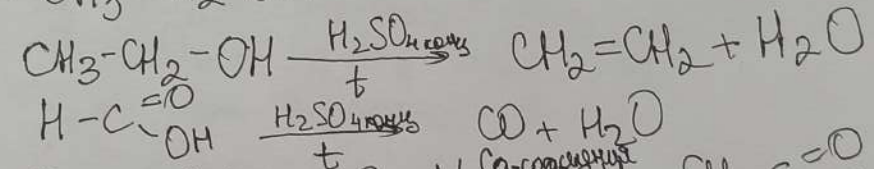 CH3-CH2-OH H2SO4конц t CH2=CH2 + H2O
H-C=O OH H2SO4конц t CO + H2O
=O